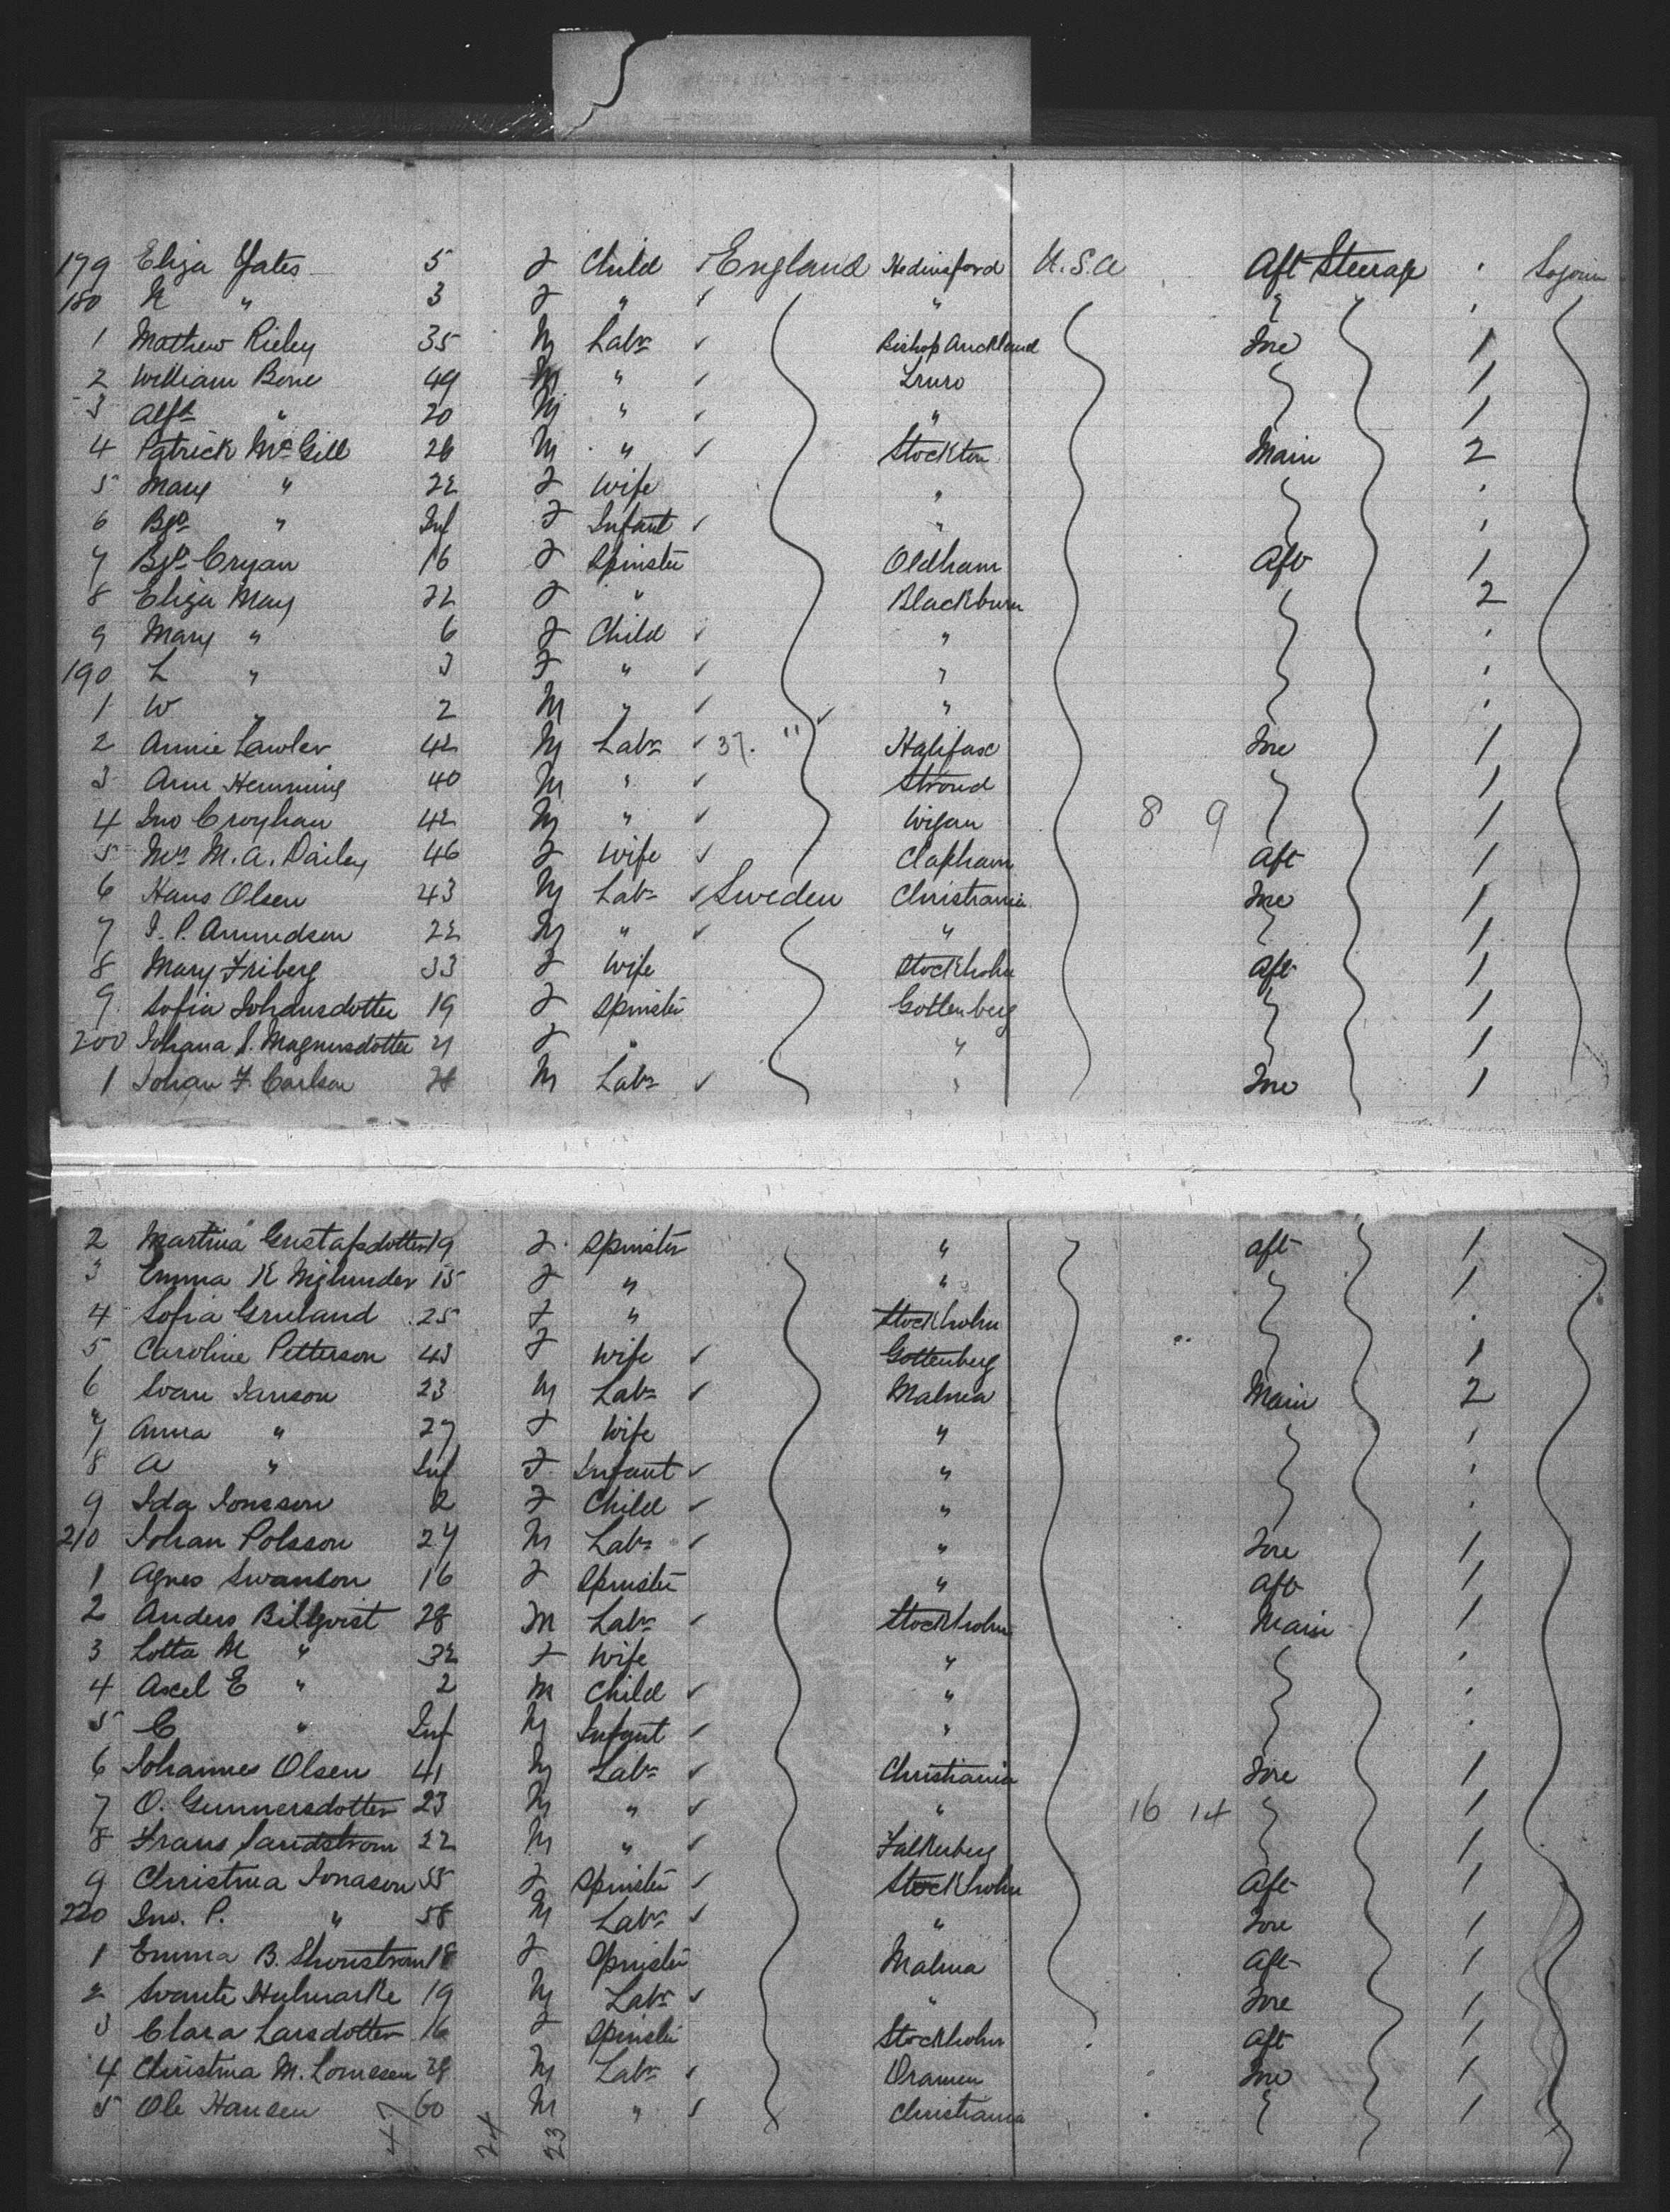 179 Eliza Yates 5 F Child England Hednisford U.S.A Aft Steerage Sojourn
180 K " 3 F " "
1 Mathew Rieley 35 M Labr Bishop Auckland Fore 1
2 William Bone 49 M " Truro 1
3 Alfd " 20 M " " 1
4 Patrick McGill 26 M " Stockton Main 2
5 Mary " 22 F Wife "
6 Bgt " Inf F Infant "
7 Bgt Cryan 16 F Spinster Oldham Aft 1
8 Eliza May 22 F " Blackburn 2
9 Mary " 6 F Child "
190 L " 3 F " "
1 W " 2 M " "
2 Annie Lawler 42 M Labr 37. " Halifax Fore 1
3 Ann Hemming 40 M " Stroud 1
4 Jno Croyhan 42 M " Wigan 8 9 1
5 Mrs M. A. Dailey 46 F Wife Clapham Aft 1
6 Hans Olsen 43 M Labr Sweden Christiania Fore 1
7 I. P. Amundsen 22 M " " 1
8 Mary Friberg 33 F Wife Stockholm Aft 1
9 Sofia Johansdotter 19 F Spinster Gottenberg 1
200 Johana S. Magnusdotter 21 F " " 1
1 Johan F. Carlson 28 M Labr " Fore 1
2 Martina Gustafsdotter 19 F Spinster " aft 1
3 Emma K 15 F " " 1
4 Sofia Gruland 25 F " Stockholm
5 Caroline Petterson 43 F Wife Gottenberg 1
6 Svan Janson 23 M Labr Malmea Main 2
7 Anna " 27 F Wife "
8 A " Inf F Infant "
9 Ida Jonsson 2 F Child "
210 Johan Polsson 27 M Labr " Fore 1
1 Agnes Swanson 16 F Spinster " Aft 1
2 Anders Billqvist 28 M Labr Stockholm Main 1
3 Lotta M " 32 F Wife "
4 Axel E " 2 M Child "
5 C " Inf M Infant "
6 Johannes Olsen 41 M Labr Christiania Fore 1
7 O. Gunnersdotter 23 M " " 16 14 1
8 Frans Sandstrom 22 M " Falkenberg 1
9 Christina Jonason 55 F Spinster Stockholm Aft 1
220 Jno. P. " 58 M Labr " Fore 1
1 Emma B. 18 F Spinster Malmea Aft 1
2 Svante Hulmarke 19 M Labr " Fore 1
3 Clara Larsdotter 16 F Spinster Stockholm Aft 1
4 Christina M. 28 M Labr Dramen Fore 1
5 Ole Hansen 60 M " Christiania 1
47 24 23